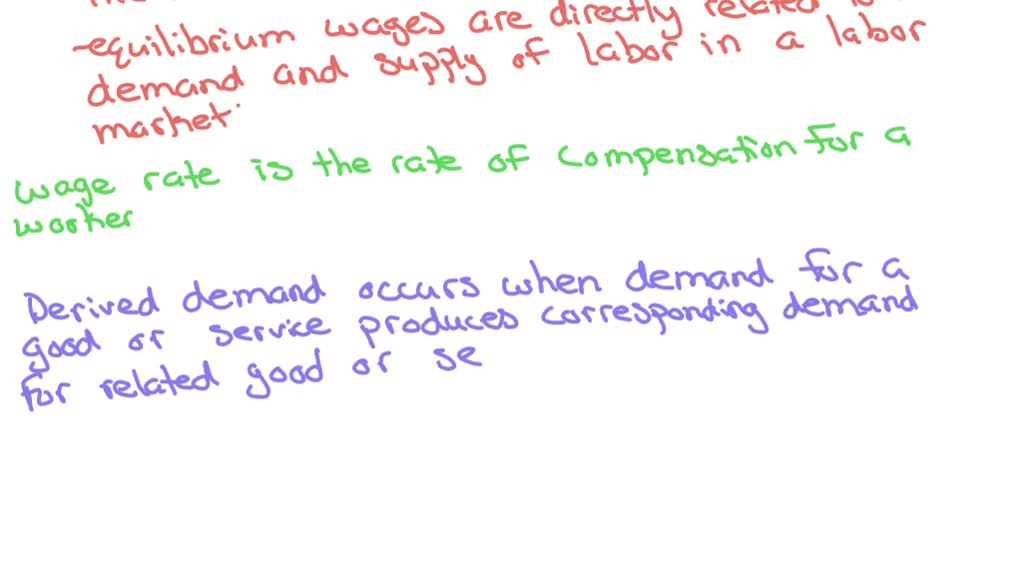 -equilibrium wages are directly related
demand and supply of labor in a labor
market.
wage rate is the rate of compensation for a
worker
Derived demand occurs when demand for a
good or service produces corresponding demand
for related good or se